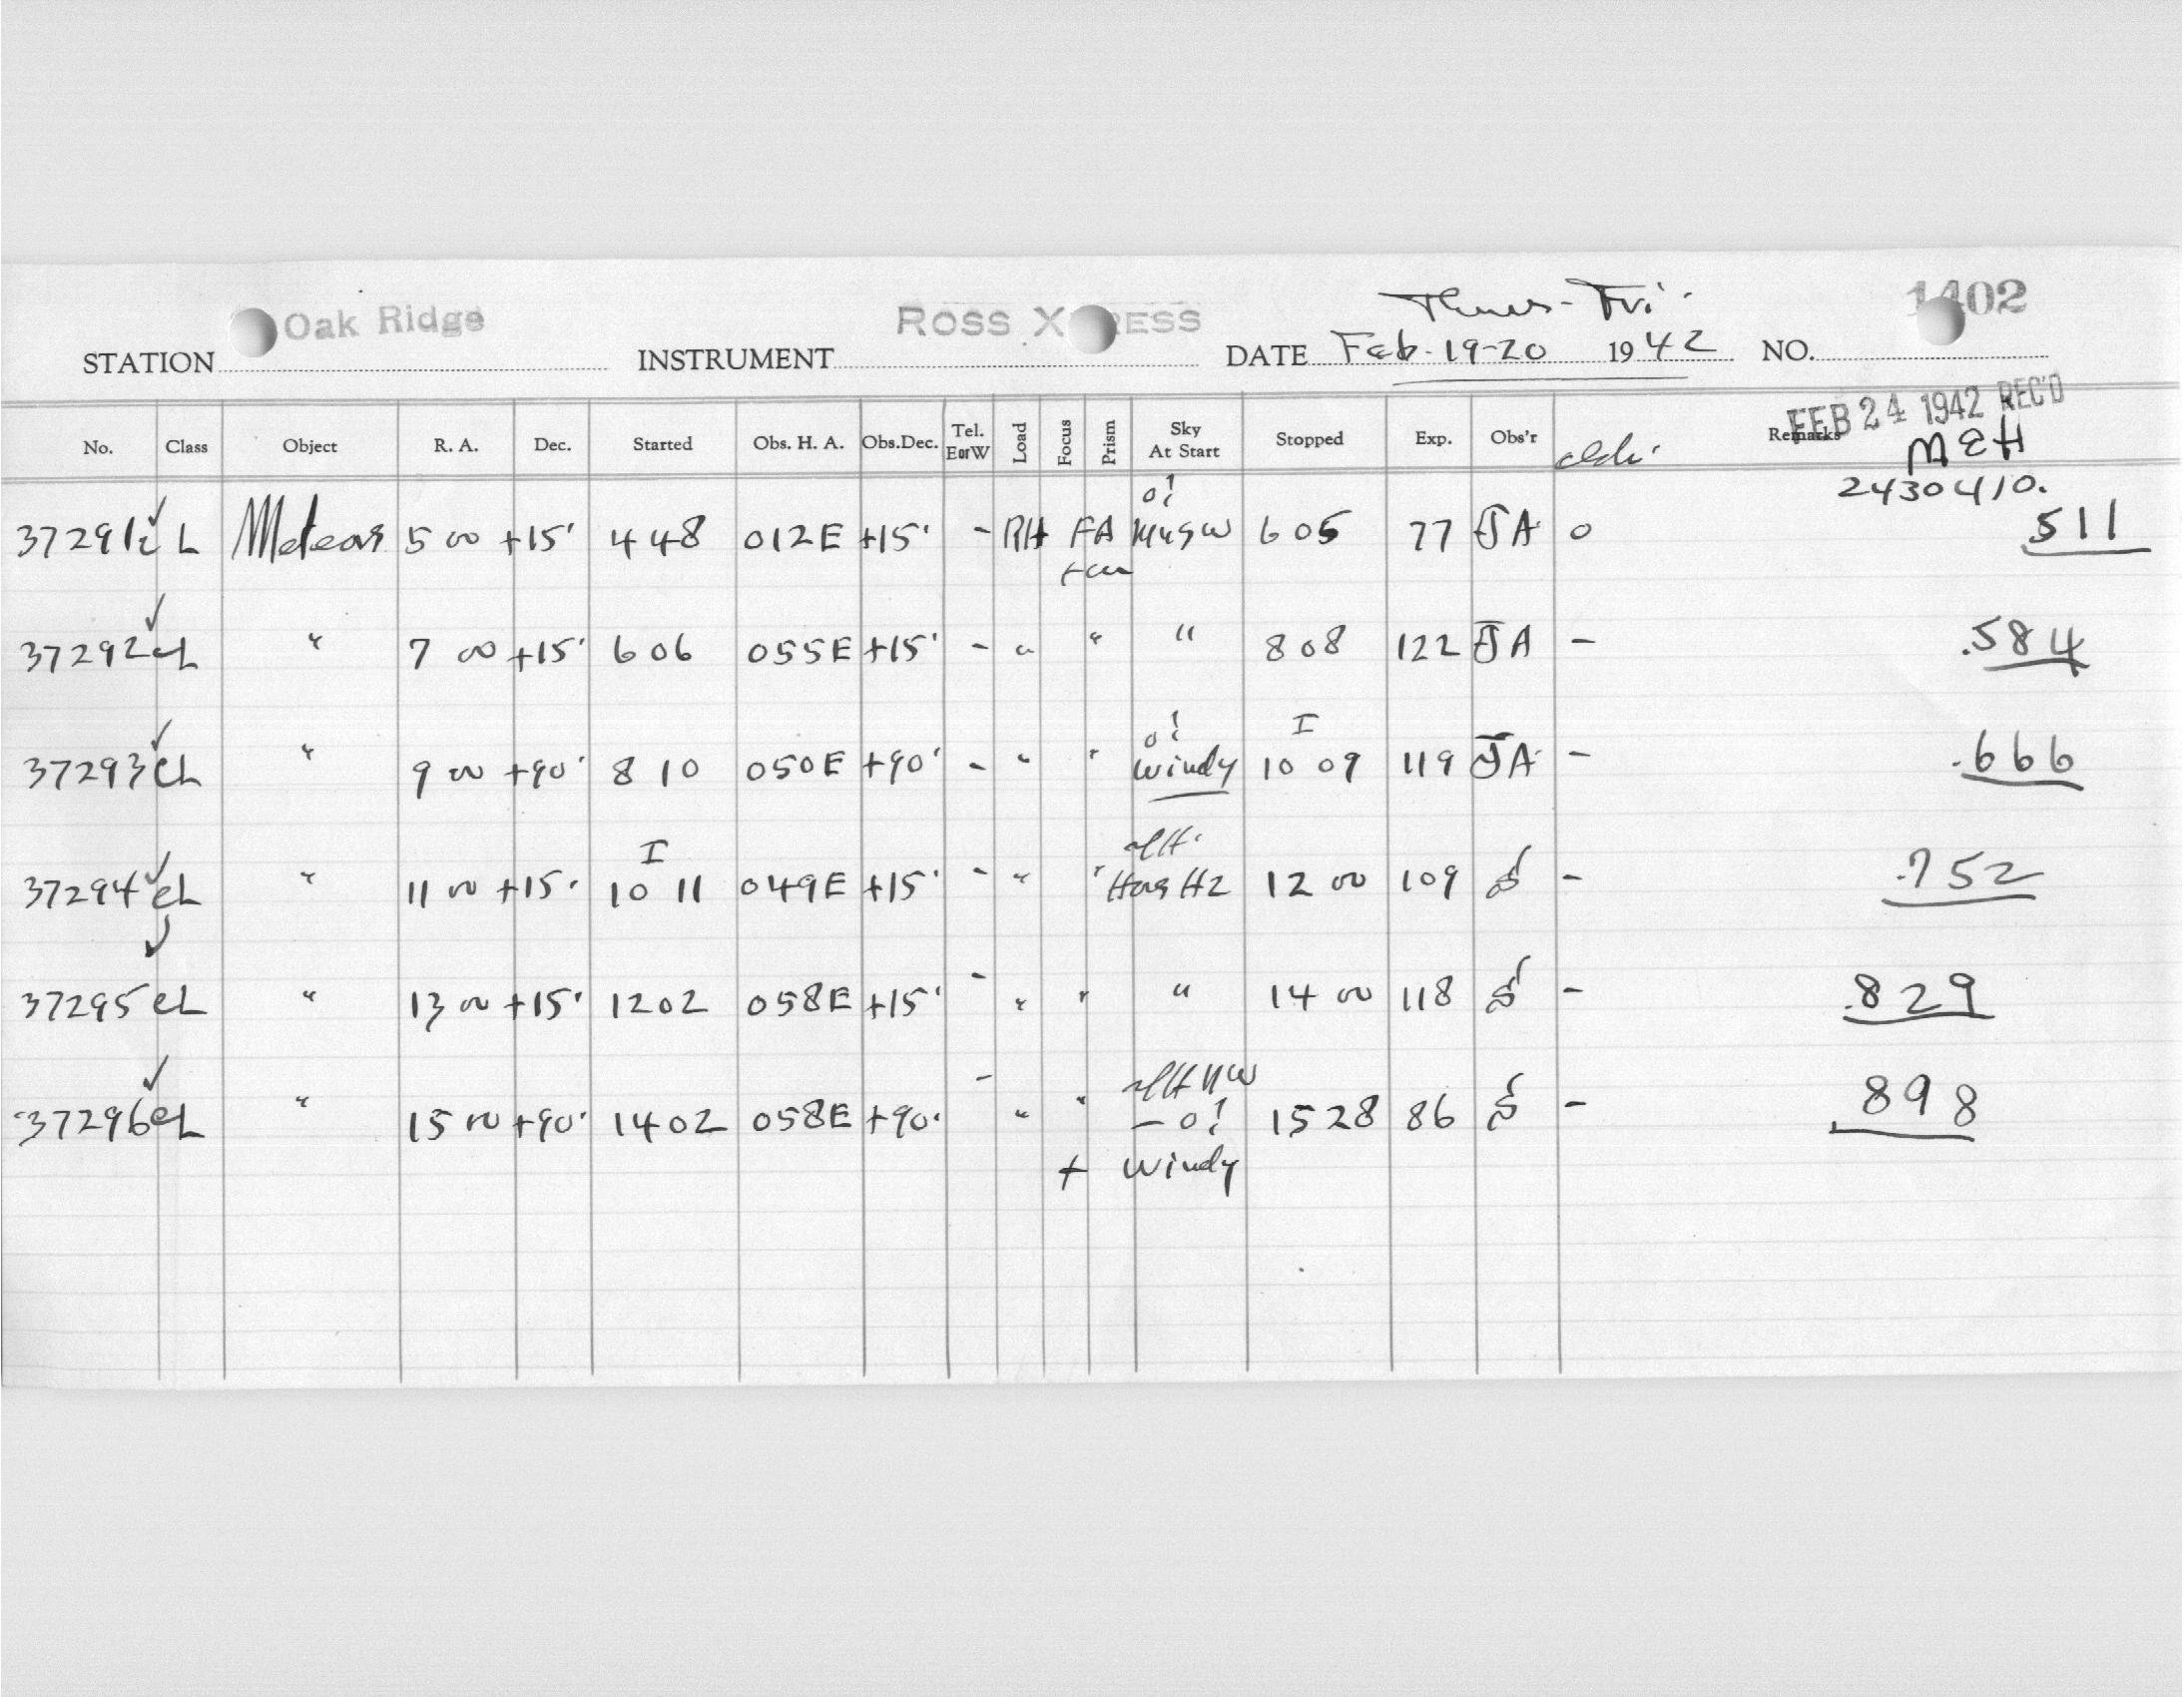 Thurs-Fri.
Oak Ridge ROSS X RESS 1402
STATION INSTRUMENT DATE Feb. 19-20 1942 NO.
FEB 24 1942 REC'D
No. Class Object R. A. Dec. Started Obs. H. A. Obs.Dec. Tel. EorW Load Focus Prism Sky At Start Stopped Exp. Obs'r Remarks
MEH
2430410.
37291 L Meteors 5 00 +15' 4 48 012E +15' - RH FA 6 05 77 JA 0 511
37292 L " 7 00 +15' 6 06 055E +15' - " " " 8 08 122 JA - .584
I
37293 CL " 9 00 +90' 8 10 050E +90' - " " Windy 10 09 119 JA - .666
I
37294 CL " 11 00 +15' 10 11 049E +15' - " " 12 00 109 - .752
37295 CL " 13 00 +15' 12 02 058E +15' - " " " 14 00 118 - .829
37296 CL " 15 00 +90' 14 02 058E +90' - " " 15 28 86 - .898
+ Windy